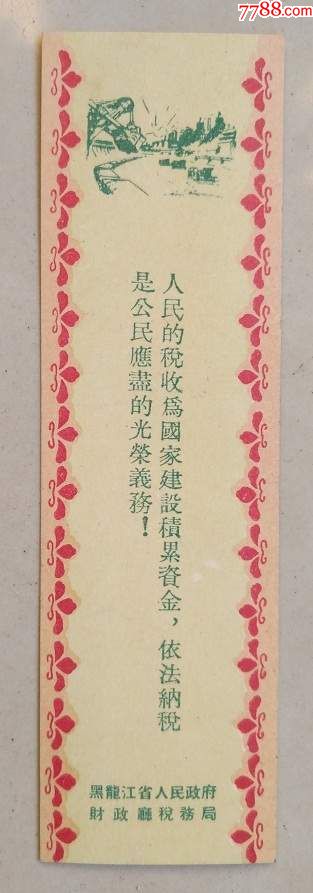 7788.com
人民的稅收爲國家建設積累資金，依法納稅
是公民應盡的光榮義務！
黑龍江省人民政府
財政廳稅務局